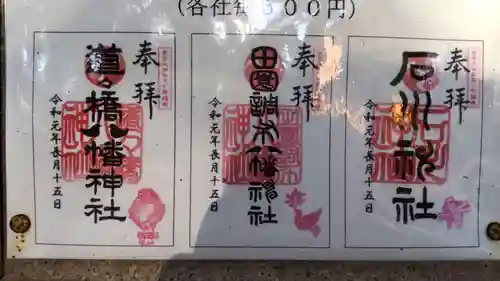 (各社毎300円)
奉拝
道々橋八幡神社
令和元年長月十五日
奉拝
田園調布八幡神社
令和元年長月十五日
奉拝
石川神社
令和元年長月十五日